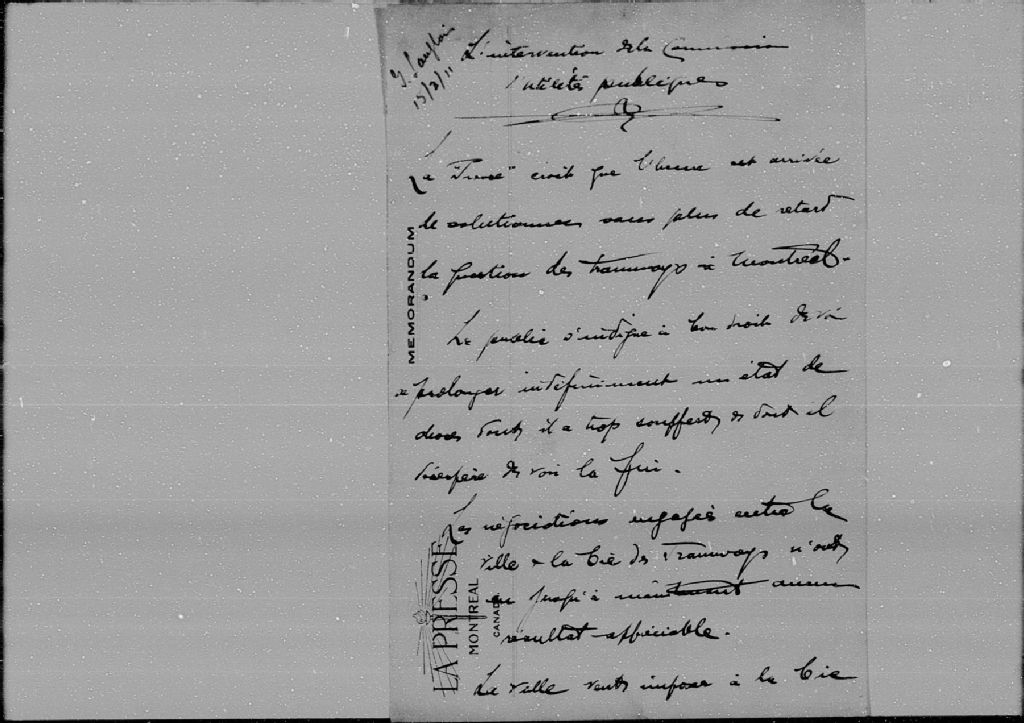 G. Langlois
13/3/11
L'intervention de la Commission
d'utilités publiques
La "Presse" croit que l'heure est arrivée
de solutionner sans plus de retard
la question des tramways à Montréal.
Le public s'indigne à bon droit de voi
se prolonger indéfiniment un état de
choses dont il a trop souffert & dont il
désespère de voir la fin.
Les négociations engagées entre la
ville & la Cie des Tramways n'ont
eu jusqu'à maintenant aucun
résultat appréciable.
La ville veut imposer à la Cie
MEMORANDUM
LA PRESSE
MONTREAL
CANADA